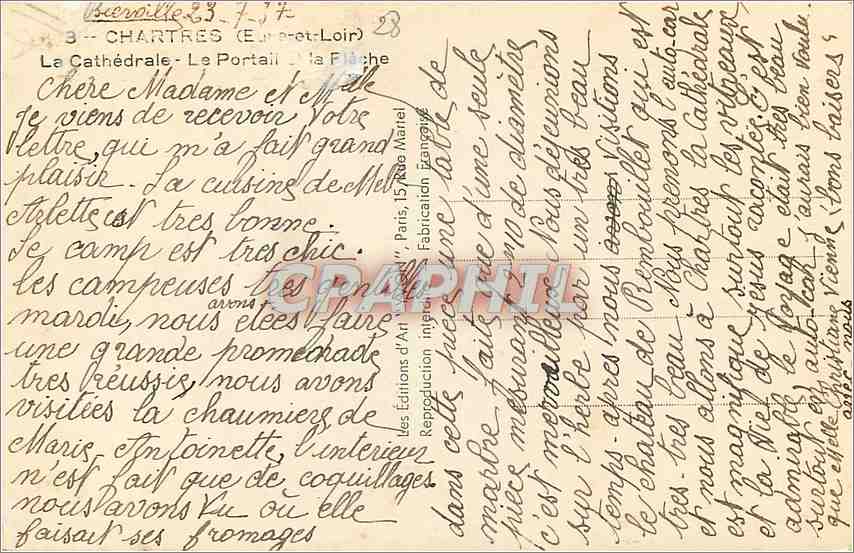 Bierville 23-7-37
28
3 -- CHARTRES (Eure-et-Loir)
La Cathédrale - Le Portail la Flèche
Chère Madame et Melle
Je viens de recevoir votre
lettre, qui m'a fait grand
plaisir. La cuisine de Melle
Arlette est tres bonne.
Le camp est tres chic.
les campeuses tres gentilles
mardi, nous avons etées faire
une grande promenade
tres réussie, nous avons
visitées la chaumière de
Marie-Antoinette, l'interieur
n'est fait que de coquillages
nous avons vu où elle
faisait ses fromages
Les Editions d'Art Paris, 15, Rue Martel
Reproduction interdite Fabrication Française
dans cette pièce une table de
marbre faite que d'une seule
pièce mesurant 2m de diamètre
c'est merveilleux. Nous déjeunions
sur l'herbe par un tres beau
temps-après nous avons visitions
le chateau de Rembouillet qui est
tres-tres beau. Nous prenons l'auto-car
et nous allons à Chartres la Cathédrale
est magnifique surtout les vitreaux,
et la Vie de Jesus racontée c'est
admirable, le voyage était tres beau
surtout en auto-car, j'aurais bien voulu
que Melle Christiane Vienne, bons baisers
avec nous
CPRAPHIL